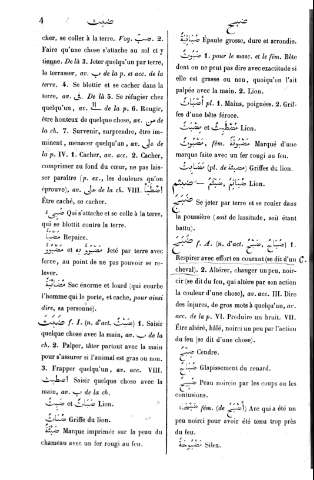 4
ضبث
ضبح
cher, se coller à la terre. Voy. ضبب. 2.
Faire qu'une chose s'attache au sol et y
tienne. De là 3. Jeter quelqu'un par terre,
la terrasser, av. ب de la p. et acc. de la
terre. 4. Se blottir et se cacher dans la
terre, av. فى. De là 5. Se réfugier chez
quelqu'un, av. الى de la p. 6. Rougir,
être honteux de quelque chose, av. من de
la ch. 7. Survenir, surprendre, être im-
minent, menacer quelqu'un, av. على de
la p. IV. 1. Cacher, av. acc. 2. Cacher,
comprimer au fond du cœur, ne pas lais-
ser paraître (p. ex., les douleurs qu'on
éprouve), av. على de la ch. VIII. إِضْطَبَأَ
Être caché, se cacher.
Qui s'attache et se colle à la terre,
qui se blottit contre la terre.
Repaire.
et Jeté par terre avec
force, au point de ne pas pouvoir se re-
lever.
Sac énorme et lourd (qui courbe
l'homme qui le porte, et cache, pour ainsi
dire, sa personne).
ضَبَثَ f. I. (n. d'act. ضَبْث) 1. Saisir
quelque chose avec la main, av. ب de la
ch. 2. Palper, tâter partout avec la main
pour s'assurer si l'animal est gras ou non.
3. Frapper quelqu'un, av. acc. VIII.
إِضْطَبَثَ Saisir quelque chose avec la
main, av. ب de la ch.
et Lion.
Griffe du lion.
Marque imprimée sur la peau du
chameau avec un fer rougi au feu.
Épaule grosse, dure et arrondie.
ضَبُوث 1. pour le masc. et le fém. Bête
dont on ne peut pas dire avec exactitude si
elle est grasse ou non, quoiqu'on l'ait
palpée avec la main. 2. Lion.
pl. 1. Mains, poignées. 2. Grif-
fes d'une bête féroce.
et Lion.
fém. Marqué d'une
marque faite avec un fer rougi au feu.
(pl. de) Griffes du lion.
Lion.
Se jeter par terre et se rouler dans
la poussière (soit de lassitude, soit étant
battu).
ضَبَحَ f. A. (n. d'act. ضَبْح, ضُبَاح) 1.
Respirer avec effort en courant (se dit d'un
cheval). 2. Altérer, changer un peu, noir-
cir (se dit du feu, qui altère par son action
la couleur d'une chose), av. acc. III. Dire
des injures, de gros mots à quelqu'un, av.
acc. de la p. VI. Produire un bruit. VII.
Être altéré, hâlé, noirci un peu par l'action
du feu (se dit d'une chose).
Cendre.
Glapissement du renard.
Peau noircie par les coups ou les
contusions.
fém. (de) Arc qui a été un
peu noirci pour avoir été tenu trop près
du feu.
Silex.